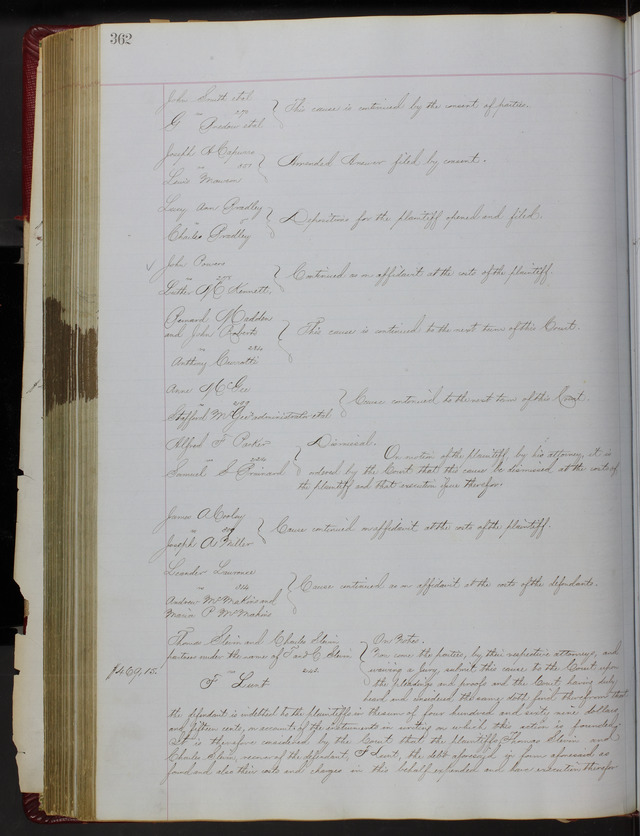 362
John Smith et al
vs
G et al
This cause is continued by the consent of parties.
Joseph A
vs
Louis
Amended Answer filed by consent.
Lucy Ann Bradley
vs
Charles Bradley
Depositions for the plaintiff opened and filed
John Powers
vs
Luther M Kennett.
Continued on affidavit at the costs of the plaintiff.
Madden
and John Roberts
vs
Anthony
This cause is continued to the next term of this Court.
Anne McGee
vs
Stafford McGee administrator et al
Cause continued to the next term of this Court.
Alfred F
vs
Samuel S
Dismissal.
On motion of the plaintiff, by his attorney, it is
ordered by the Court that this cause be dismissed at the costs of
the plaintiff and that execution issue therefor.
James A. Cooley
vs
Joseph A. Miller
Cause continued on affidavit at the costs of the plaintiff.
Leander Lawrence
vs
Andrew McMakin and
Maria P. McMakin
Cause continued on affidavit at the costs of the defendants.
Thomas Slevin and Charles Slevin
partners under the name of T and C. Slevin
vs
F Lunt
$469,15.
On Note.
Now come the parties, by their respective attorneys, and
waiving a jury, submit this cause to the Court upon
the pleadings and proofs and the Court having duly
heard and considered the same, doth find therefrom that
the defendant is indebted to the plaintiffs in the sum of four hundred and sixty nine dollars
and fifteen cents, on account of the instruments in writing on which this action is founded.
It is therefore considered by the Court that the plaintiffs Thomas Slevin and
Charles Slevin, recover of the defendant, F Lunt, the debt aforesaid in form aforesaid as
found and also their costs and charges in this behalf expended and have execution therefor